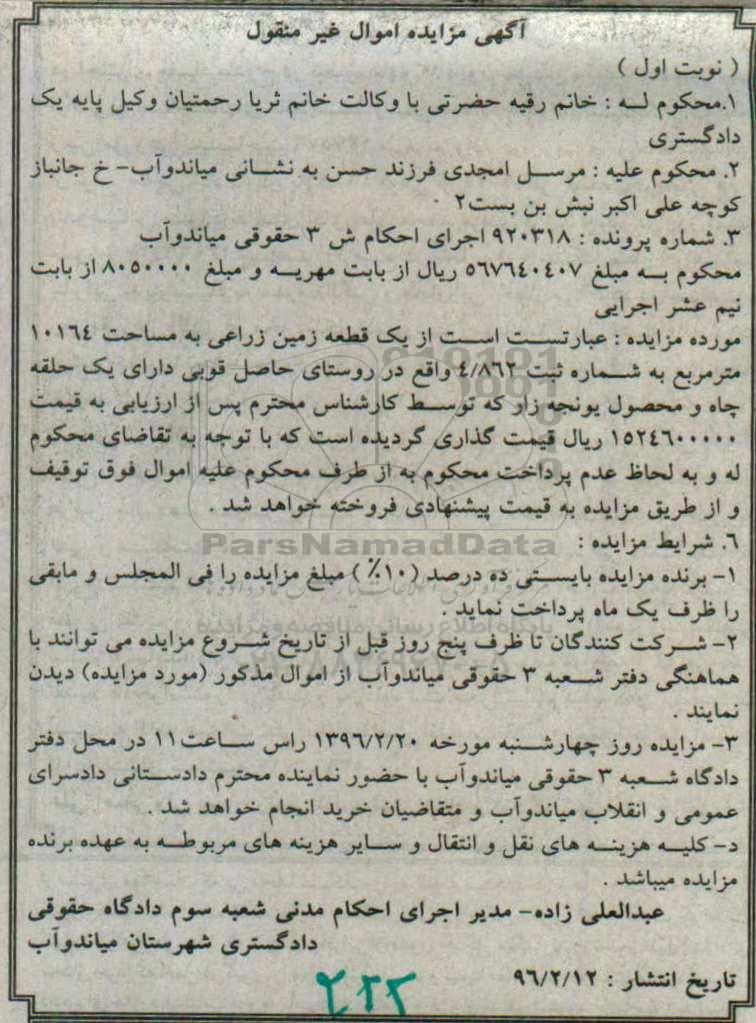 آگهی مزایده اموال غیر منقول
( نوبت اول )
۱.محکوم لـه : خانم رقیه حضرتی با وکالت خانم ثریا رحمتیان وکیل پایه یک
دادگستری
۲. محکوم علیه : مرسل امجدی فرزند حسن به نشانی میاندوآب- خ جانباز
کوچه علی اکبر نبش بن بست۲ .
۳. شماره پرونده : ۹۲۰۳۱۸ اجرای احکام ش ۳ حقوقی میاندوآب
محکوم به مبلغ ۵۶۷۶۴۰۴۰۷ ریال از بابت مهریه و مبلغ ۸۰۵۰۰۰۰ از بابت
نیم عشر اجرایی
مورده مزایده : عبارتست است از یک قطعه زمین زراعی به مساحت ۱۰۱۶۴
مترمربع به شماره ثبت ۴/۸۶۲ واقع در روستای حاصل قوبی دارای یک حلقه
چاه و محصول یونجه زار که توسط کارشناس محترم پس از ارزیابی به قیمت
۱۵۲۴۶۰۰۰۰۰ ریال قیمت گذاری گردیده است که با توجه به تقاضای محکوم
له و به لحاظ عدم پرداخت محکوم به از طرف محکوم علیه اموال فوق توقیف
و از طریق مزایده به قیمت پیشنهادی فروخته خواهد شد .
۶. شرایط مزایده :
ParsNamadData
۱- برنده مزایده بایستی ده درصد (۱۰٪) مبلغ مزایده را فی المجلس و مابقی
را ظرف یک ماه پرداخت نماید .
۲- شرکت کنندگان تا ظرف پنج روز قبل از تاریخ شروع مزایده می توانند با
هماهنگی دفتر شعبه ۳ حقوقی میاندوآب از اموال مذکور (مورد مزایده) دیدن
نمایند .
۳- مزایده روز چهارشنبه مورخه ۱۳۹۶/۲/۲۰ راس ساعت۱۱ در محل دفتر
دادگاه شعبه ۳ حقوقی میاندوآب با حضور نماینده محترم دادستانی دادسرای
عمومی و انقلاب میاندوآب و متقاضیان خرید انجام خواهد شد .
د- کلیه هزینه های نقل و انتقال و سایر هزینه های مربوطه به عهده برنده
مزایده میباشد .
عبدالعلی زاده- مدیر اجرای احکام مدنی شعبه سوم دادگاه حقوقی
دادگستری شهرستان میاندوآب
تاریخ انتشار : ۹۶/۲/۱۲